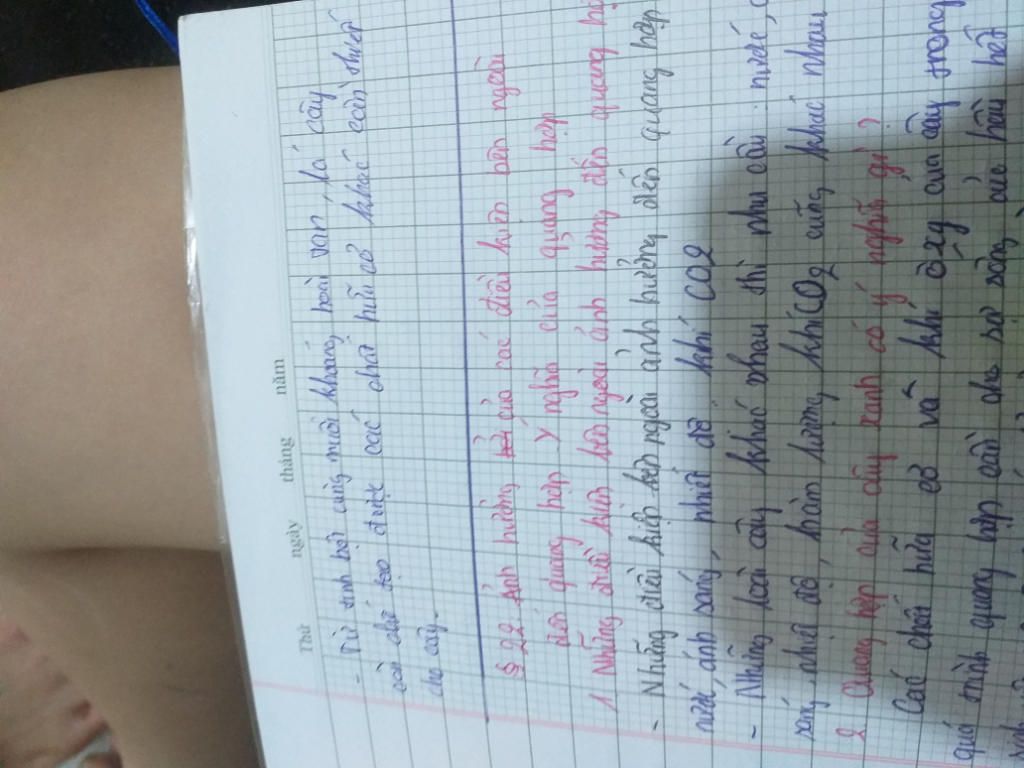 Thứ ngày tháng năm
- Từ tinh bột cùng muối khoáng hoà tan, lá cây
còn chế tạo được các chất hữu cơ khác cần thiết
cho cây.
§ 22 Ảnh hưởng của các điều kiện bên ngoài
đến quang hợp Ý nghĩa của quang hợp
1 Những điều kiện bên ngoài ảnh hưởng đến quang
- Những điều kiện bên ngoài ảnh hưởng đến quang hợp
nước, ánh sáng, nhiệt độ khí CO2
- Những loài cây khác nhau thì nhu cầu nước,
sáng nhiệt độ, hàm lượng khí CO2 cũng khác nhau
2 Quang hợp của cây xanh có ý nghĩa gì?
Các chất hữu cơ và khí ôxy của cây trong
quá trình quang hợp cần cho sự sống của hầu hết